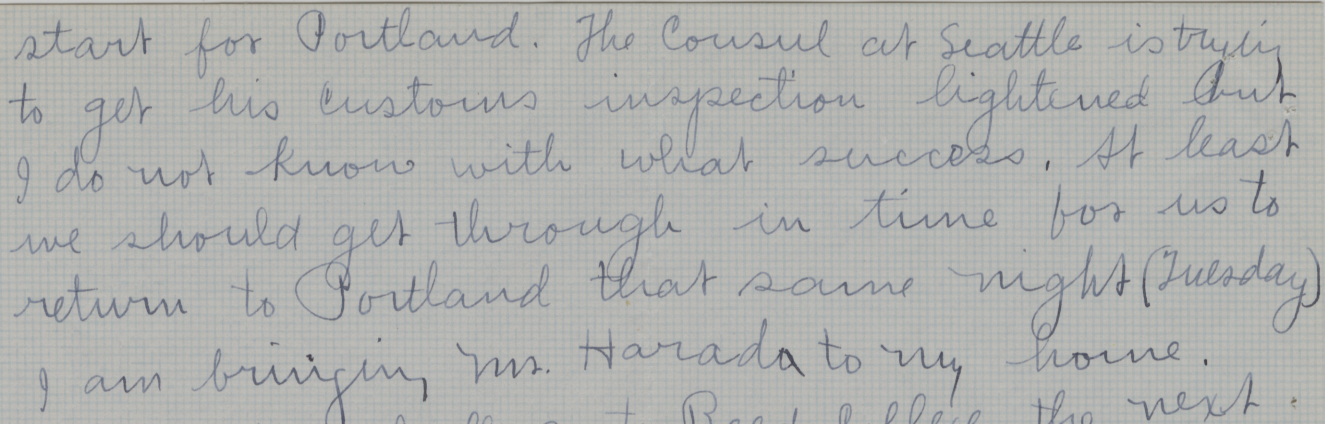 start for Portland. The Consul at Seattle is trying
to get his customs inspection lightened but
I do not know with what success. At least
we should get through in time for us to
return to Portland that same night (Tuesday)
I am bringing Mr. Harada to my home.
to Reed College the next